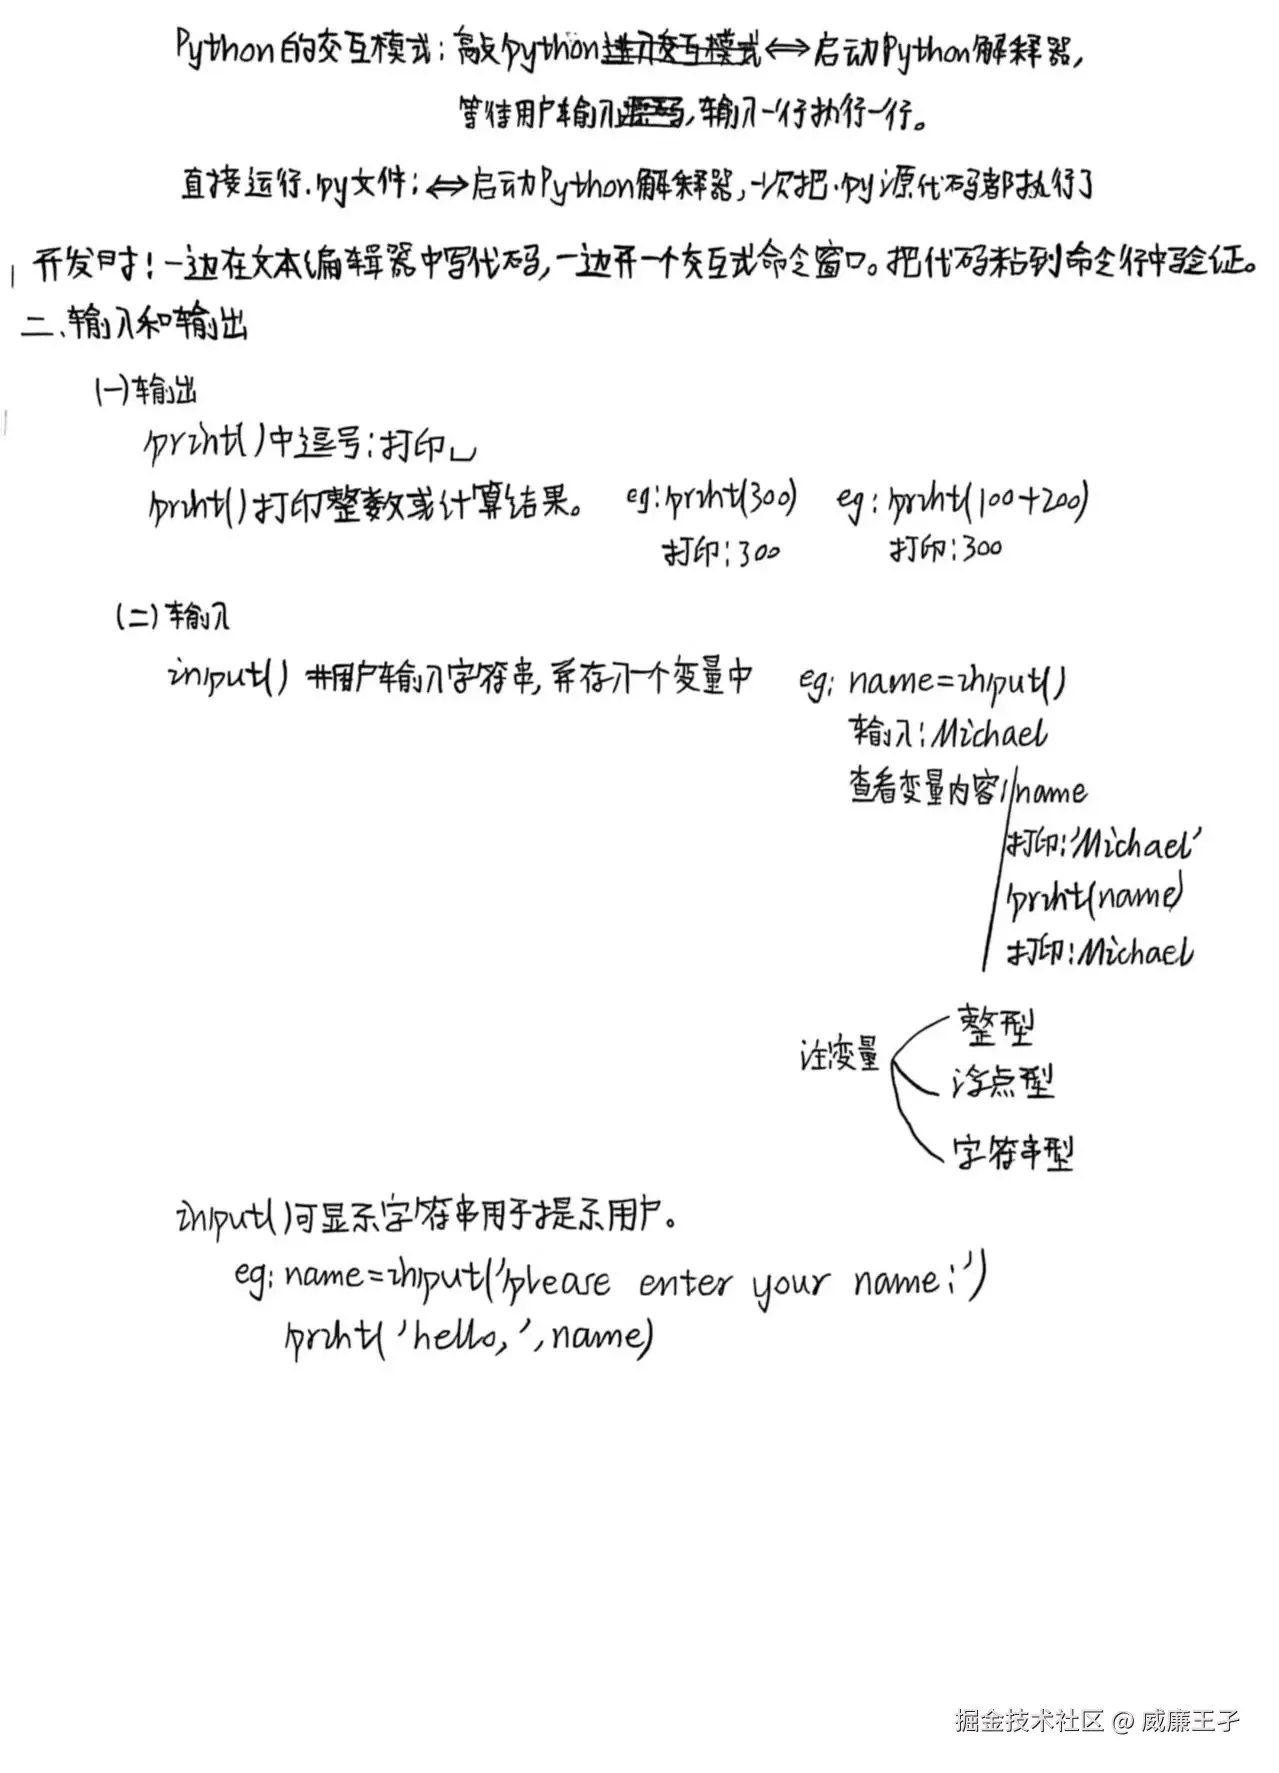 Python的交互模式：敲python进入交互模式⟺启动Python解释器，
等待用户输入源码，输入一行执行一行。
直接运行.py文件：⟺启动Python解释器，一次把.py源代码都执行了
开发时！一边在文本编辑器中写代码，一边开一个交互式命令窗口。把代码粘到命令行中验证。
二、输入和输出
(一)输出
print()中逗号：打印␣
print()打印整数或计算结果。 eg:print(300) eg:print(100+200)
打印:300 打印:300
(二)输入
input() #用户输入字符串，并存入一个变量中 eg: name=input()
输入:Michael
查看变量内容: name
打印:'Michael'
print(name)
打印:Michael
整型
注:变量
浮点型
字符串型
input()可显示字符串用于提示用户。
eg: name=input('please enter your name:')
print('hello,',name)
掘金技术社区 @ 威廉王子